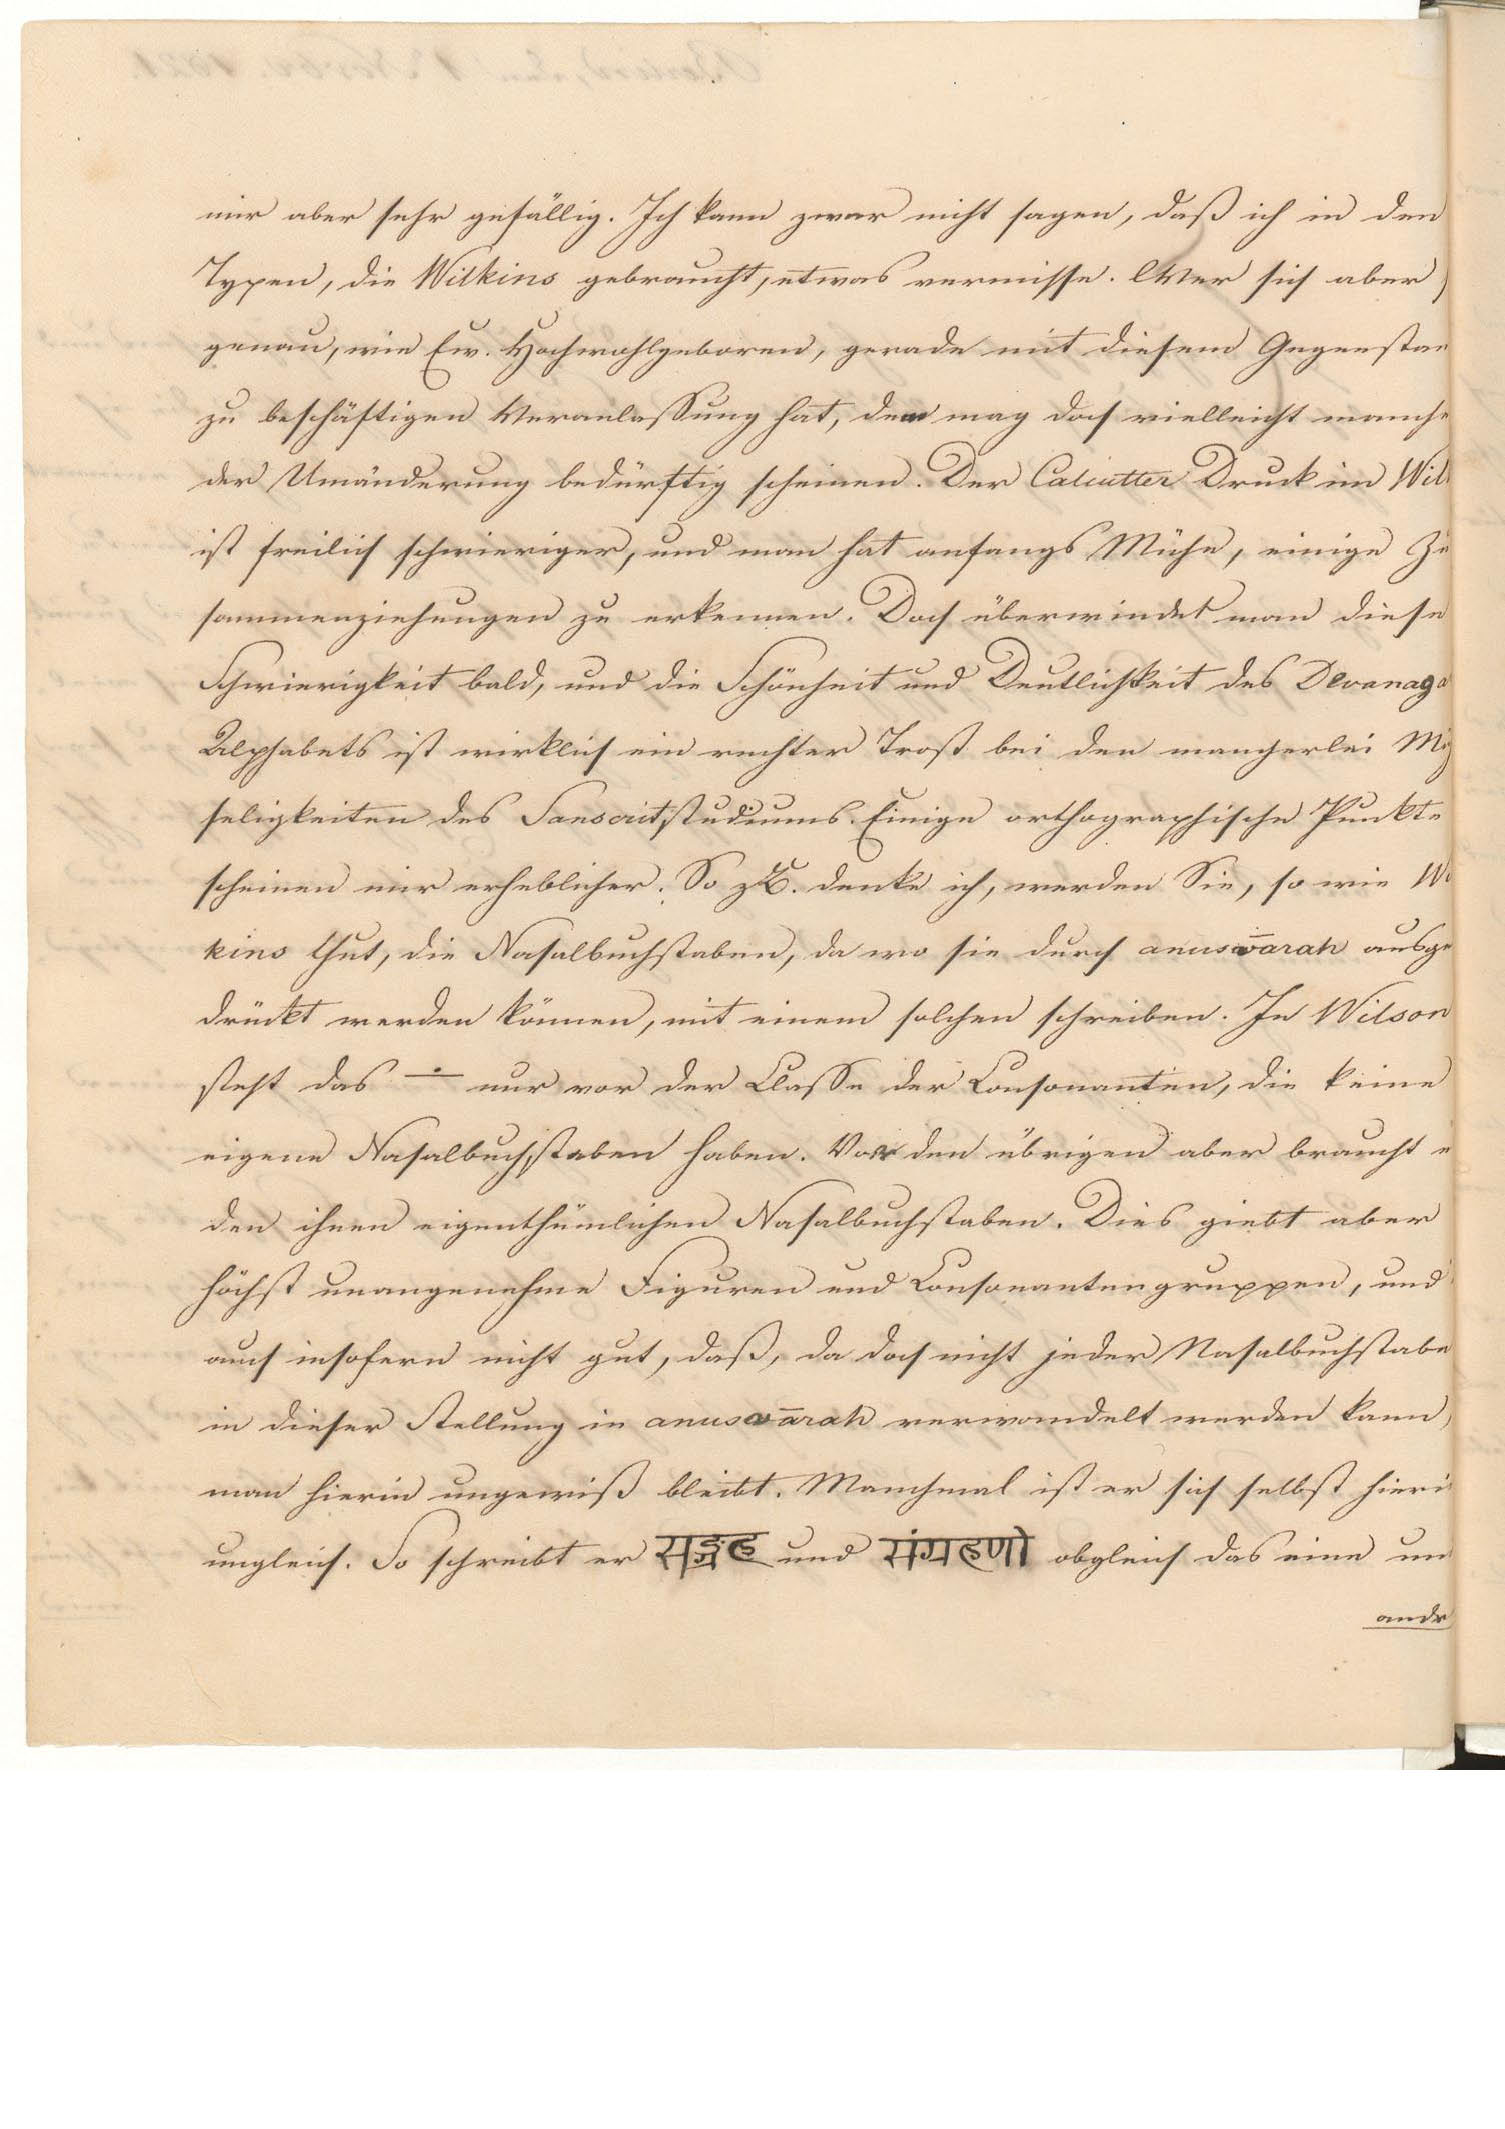 mir aber sehr gefällig. Ich kann zwar nicht sagen, daß ich in den
Typen, die Wilkins gebraucht, etwas vermisse. Wer sich aber
genau, wie Ew. Hochwohlgeboren, gerade mit diesem Gegenstan
zu beschäftigen Veranlassung hat, dem mag doch vielleicht manche
der Umänderung bedürftig scheinen. Der Calcutter Druck im Wil
ist freilich schwieriger, und man hat anfangs Mühe, einige Zu
sammenziehungen zu erkennen. Doch überwindet man diese
Schwierigkeit bald, und die Schönheit und Deutlichkeit des Devanaga
Alphabets ist wirklich ein rechter Trost bei den mancherlei Müh
seligkeiten des Sanscritstudiums. Einige orthographische Punkte
scheinen mir erheblicher. So z.B. denke ich, werden Sie, so wie Wi
kins thut, die Nasalbuchstaben, da wo sie durch anuswārah ausge
drückt werden können, mit einem solchen schreiben. In Wilson
steht das ∸ nur vor der Classe der Consonanten, die keine
eigene Nasalbuchstaben haben. Vor den übrigen aber braucht e
den ihnen eigenthümlichen Nasalbuchstaben. Dies giebt aber
höchst unangenehme Figuren und Consonantengruppen, und
auch insofern nicht gut, daß, da doch nicht jeder Nasalbuchstabe
in dieser Stellung in anuswārah verwandelt werden kann,
man hierin ungewiß bleibt. Manchmal ist er sich selbst hieri
ungleich. So schreibt er सङ्ग्रह und संग्रहणो obgleich das eine un
andr